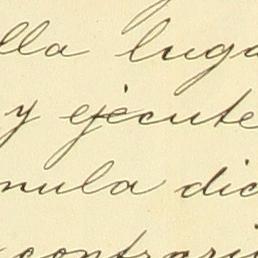 lla luga
y ejecute
mula dic
contrari